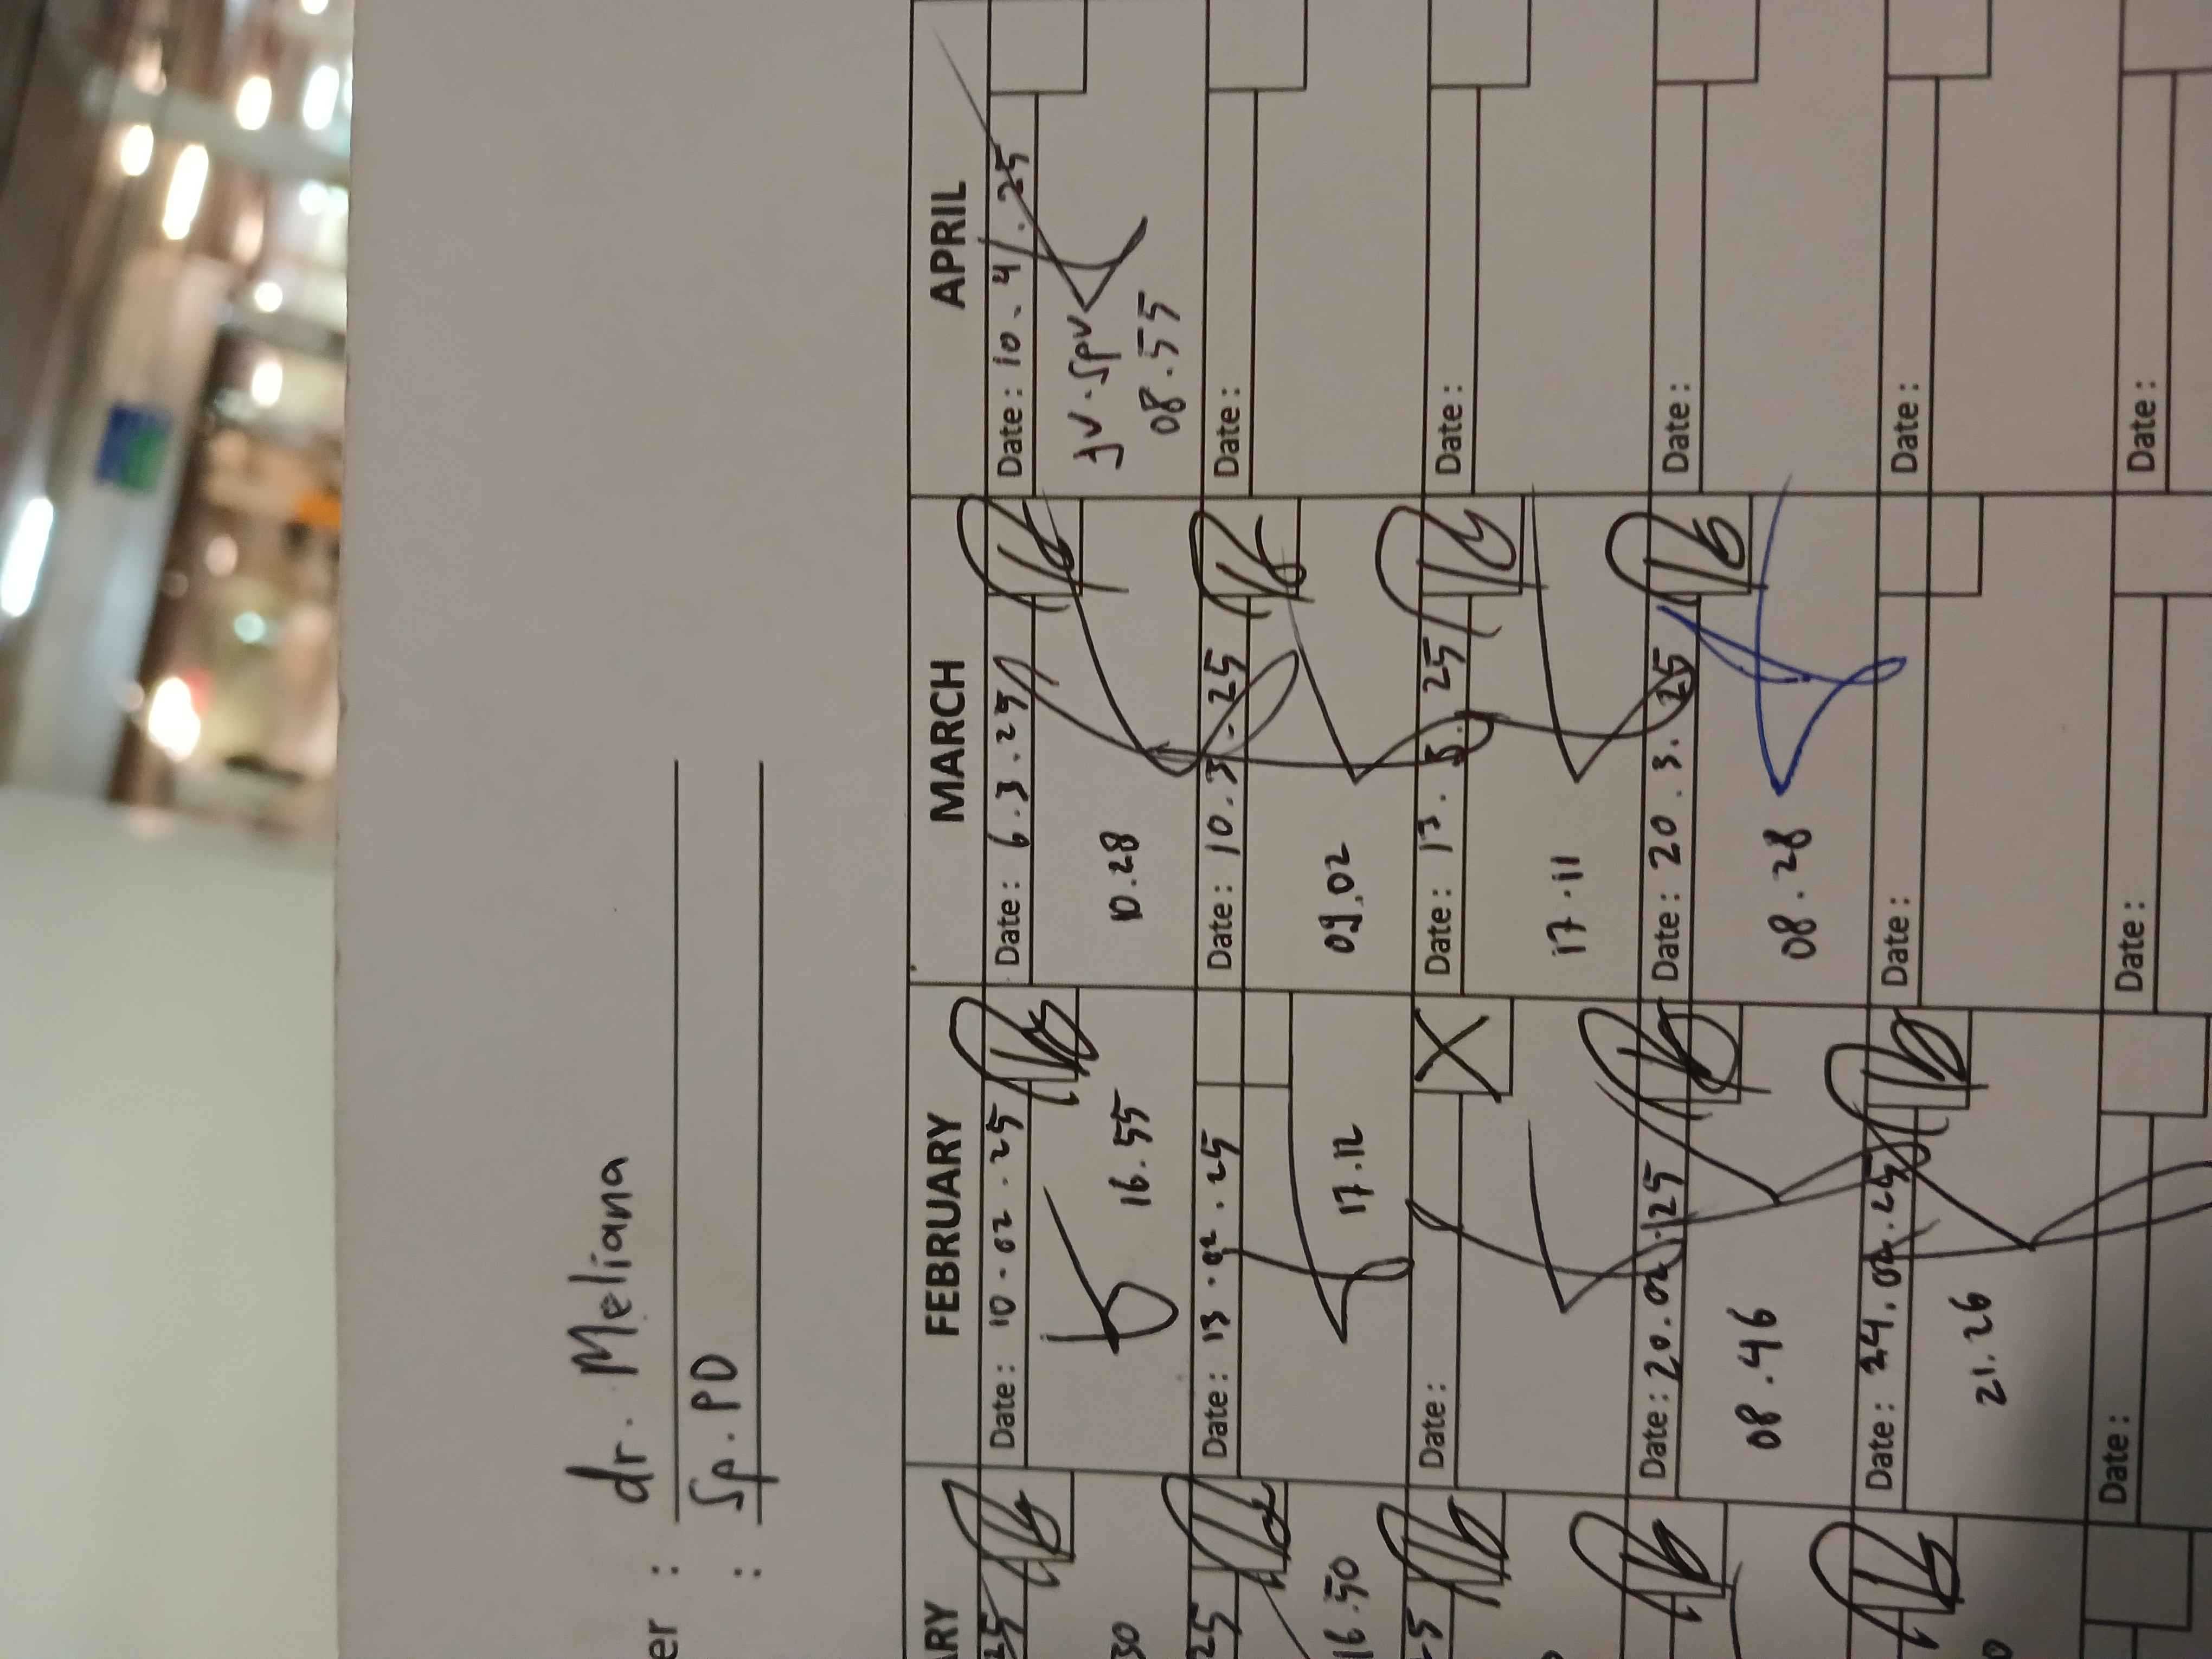 er : dr. Meliana
: Sp. PD
ARY FEBRUARY MARCH APRIL
25 Date: 10.02.25 Date: 6.3.25 Date: 10.4.25
30 16.55 10.28 JV. Spv
08.55
25 Date: 13.02.25 Date: 10.3.25 Date:
16.50 17.12 09.02
25 Date: Date: 13.3.25 Date:
17.11
Date: 20.02.25 Date: 20.3.25 Date:
08.46 08.28
Date: 24.02.25 Date: Date:
21.26
Date: Date: Date: